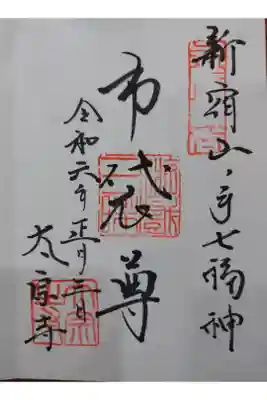 新宿山ノ手七福神
布袋尊
令和六年正月二日
太宗寺